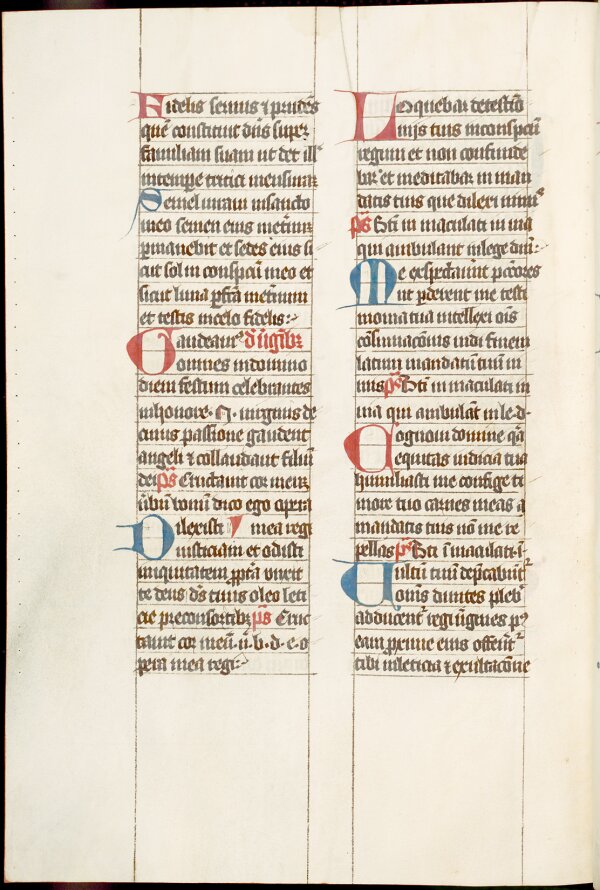 Fidelis seruus ⁊ prudēs
quē constituit dn̄s super
familiam suam ut det ill̄
intempe̅ tritici mensuram
Semel iuraui insancto
meo semen eius meternū
permanebit et sedes eius si
cut sol in conspcū̄ meo et
sicut luna p̄fcā meternum
et testis incelo fidelis
Gaudeamꝰ d' uˀgībꝫ
omnes indomino
diem festum celebrantes
inhonore N uirginis de
cuius passione gaudent
angeli ⁊ collaudant filiū
dei ps̄ Eructauit cor meū
ūbū bonū dico ego opera
Dilexisti V mea regi
iusticiam et odisti
iniquitatem ꝓpt̄a vnxit
te deus ds̄ tuus oleo leti
cie preconsortibꝫ ps̄ Eruc
tauit cor meū ū b d e o
pera mea regi
Loquebar detestiō
nijs tuis inconspcū
regum et non confunde
bar et meditabar in man
datis tuis que dilexi nimiˢ
ps̄ Bt̄i in maculati in uia
qui ambulant inlege dn̄i
Me exspectauūt pctōres
ut pderent me testi
monia tua intellexi oīs
cōsūmacōnis uidi finem
latum mandatū tuū ni
mis ps̄ Bt̄i in maculati in
uia qui ambulāt in le d
Cognoui domine qā
equitas iudicia tua
⁊ inueritate tua
humiliasti me confige ti
more tuo carnes meas a
mandatis tuis nō me re
pellas ps̄ Bt̄i ī maculati ī
Uultū tuū dep̄cabūtˀ
omnis diuites plebˀ
adducentˀ regi uˀgines pˀ
eam ꝓxime eius offerūtˀ
tibi inleticia ⁊ exultacōne